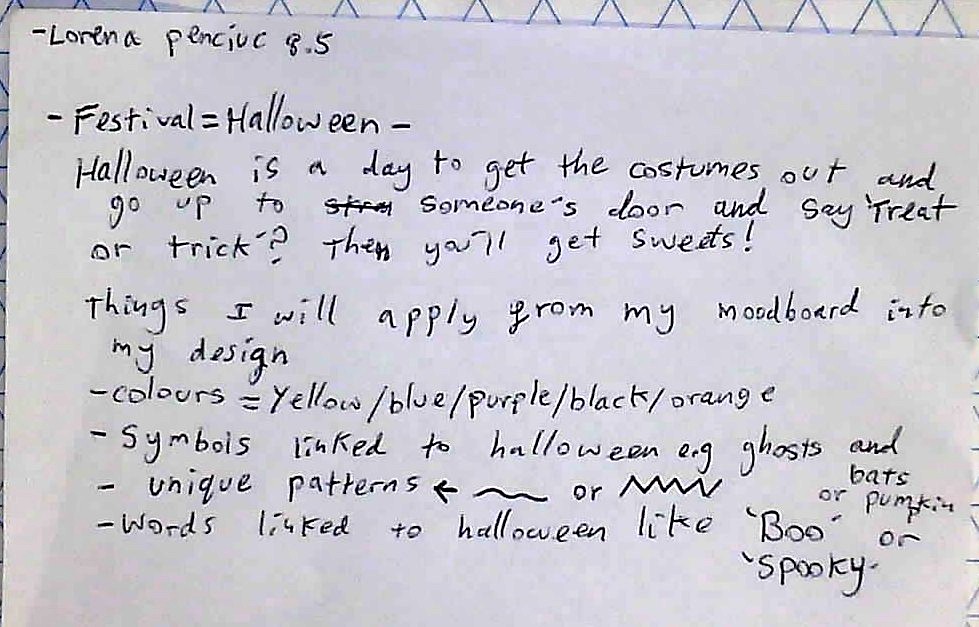 -Lorena penciuc 8.5
- Festival = Halloween -
Halloween is a day to get the costumes out and
go up to someone's door and say 'Treat
or trick'? Then you'll get sweets!
Things I will apply from my moodboard into
my design
- colours = Yellow/blue/purple/black/orange
- Symbols linked to halloween e.g ghosts and
bats
or pumpkin
- unique patterns ← or
- Words linked to halloween like 'Boo' or
'Spooky-